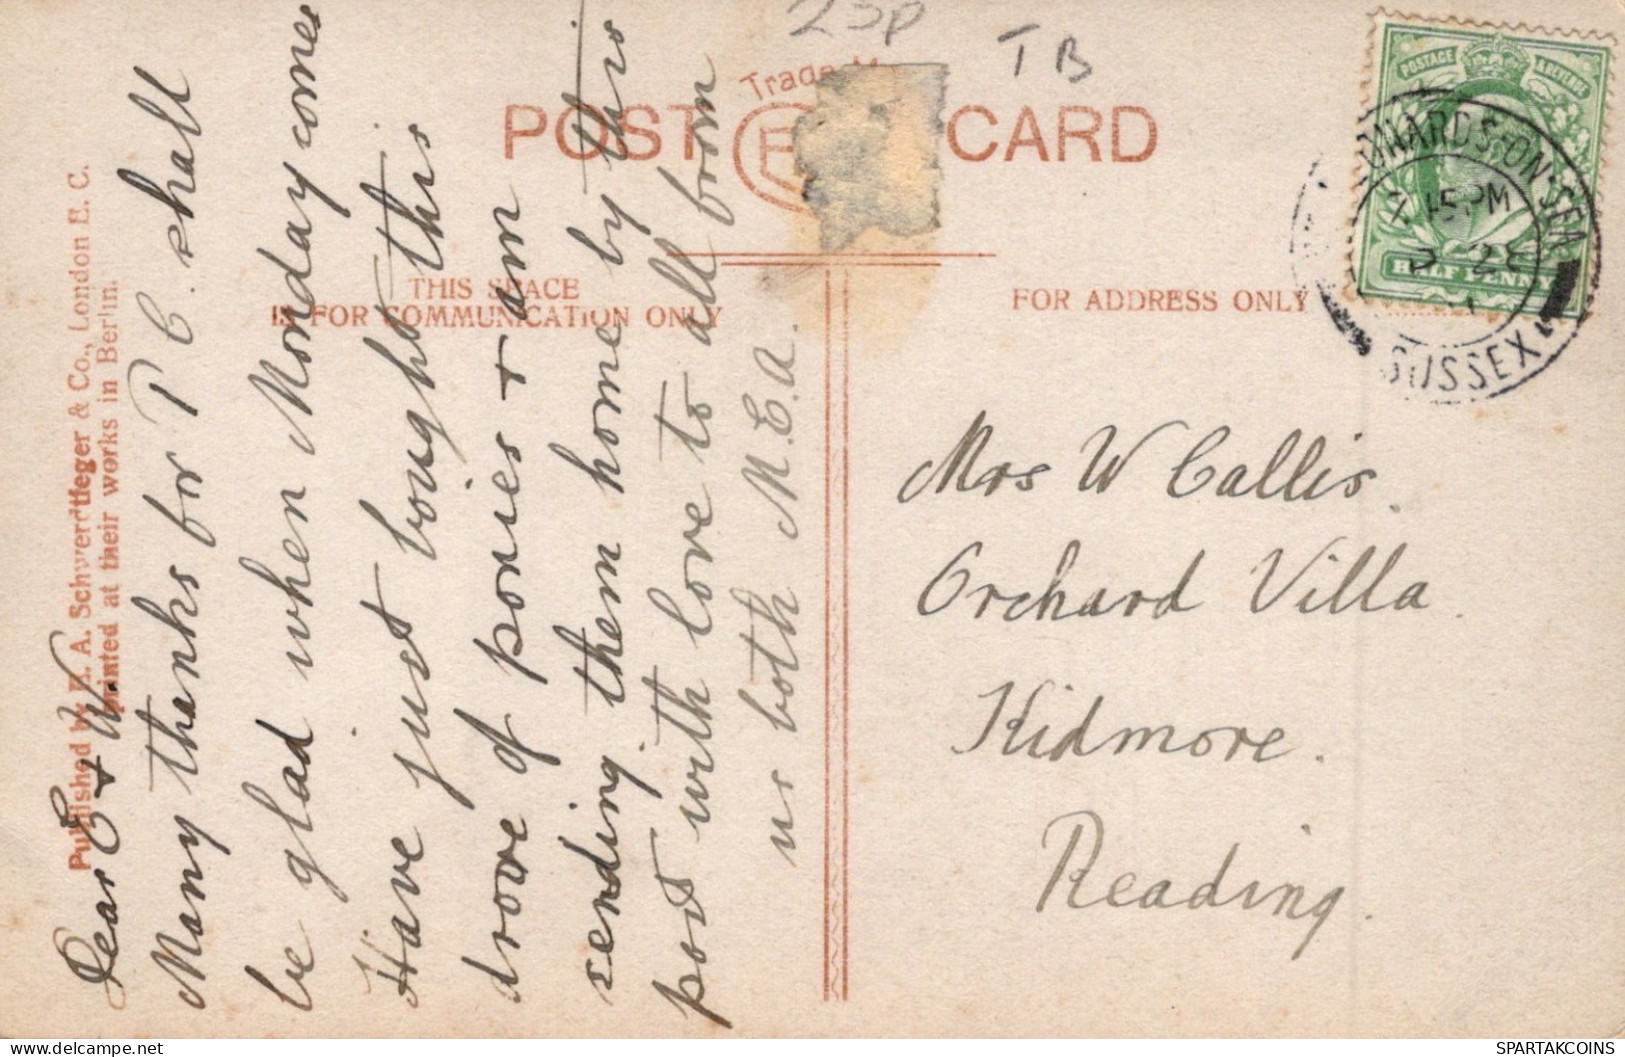 23p
TB
Trade
POST CARD
THIS SPACE
IS FOR COMMUNICATION ONLY
FOR ADDRESS ONLY
POSTAGE & REVENUE
HALF PENNY
ONARDS-ON-SEA
45 PM
SUSSEX
Published by E. A. Schwerdtfeger & Co., London E. C.
printed at their works in Berlin.
Dear E & W
Many thanks for P C. shall
be glad when Monday comes
Have just bought this
drove of ponies & am
sending them home by this
post with love to all from
us both M.E.A.
Mrs W Callis.
Orchard Villa.
Kidmore.
Reading.
SPARTAKCOINS